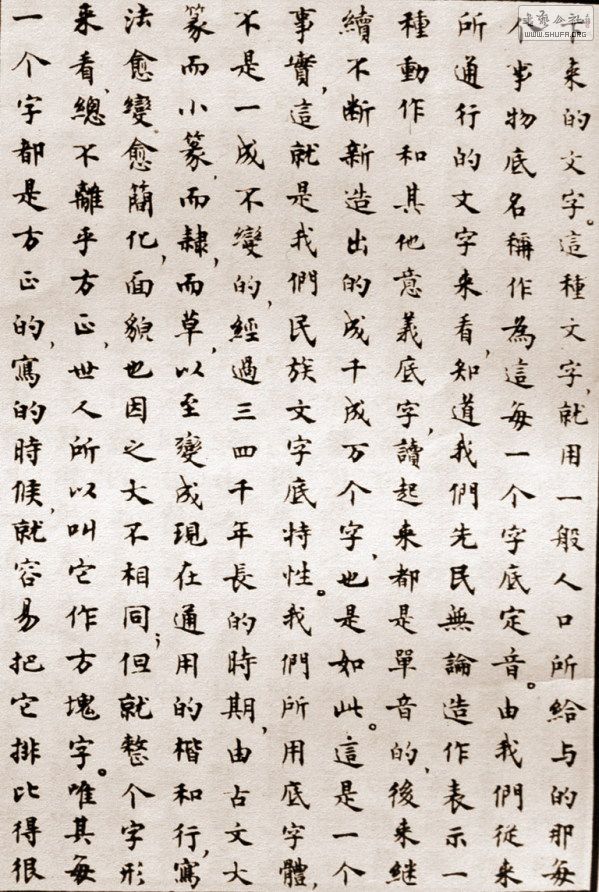 来的文字。這種文字,就用一般人口所給与的那每
事物底名稱作為這每一个字底定音。由我們從来
所通行的文字来看,知道我們先民無論造作表示一
種動作和其他意義底字,讀起来都是單音的,後来継
續不断新造出的成千成万个字,也是如此。這是一个
事實,這就是我們民族文字底特性。我們所用底字體,
不是一成不變的,經過三四千年長的時期,由古文大
篆而小篆,而隸,而草,以至變成現在通用的楷和行,寫
法愈變愈簡化,面貌也因之大不相同;但就整个字形
来看,總不離乎方正,世人所以叫它作方塊字。唯其每
一个字都是方正的,寫的時候,就容易把它排比得很
書藝公社
WWW.SHUFA.ORG